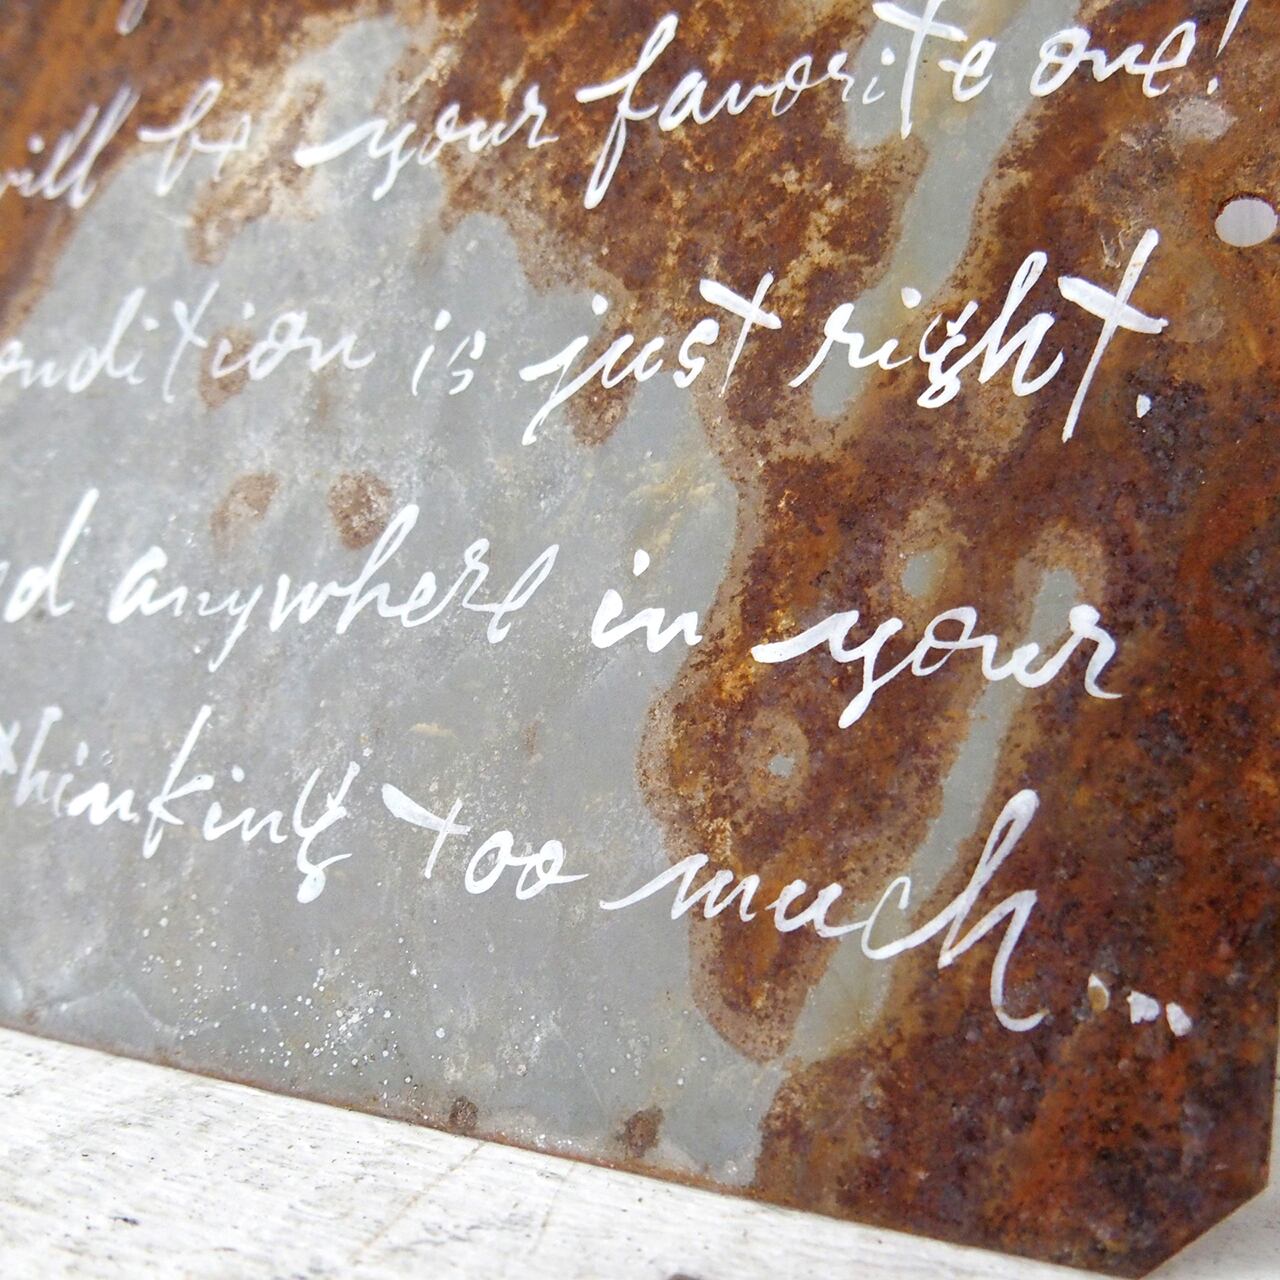 will be your favorite one!
ondition is just right.
d anywhere in your
thinking too much...